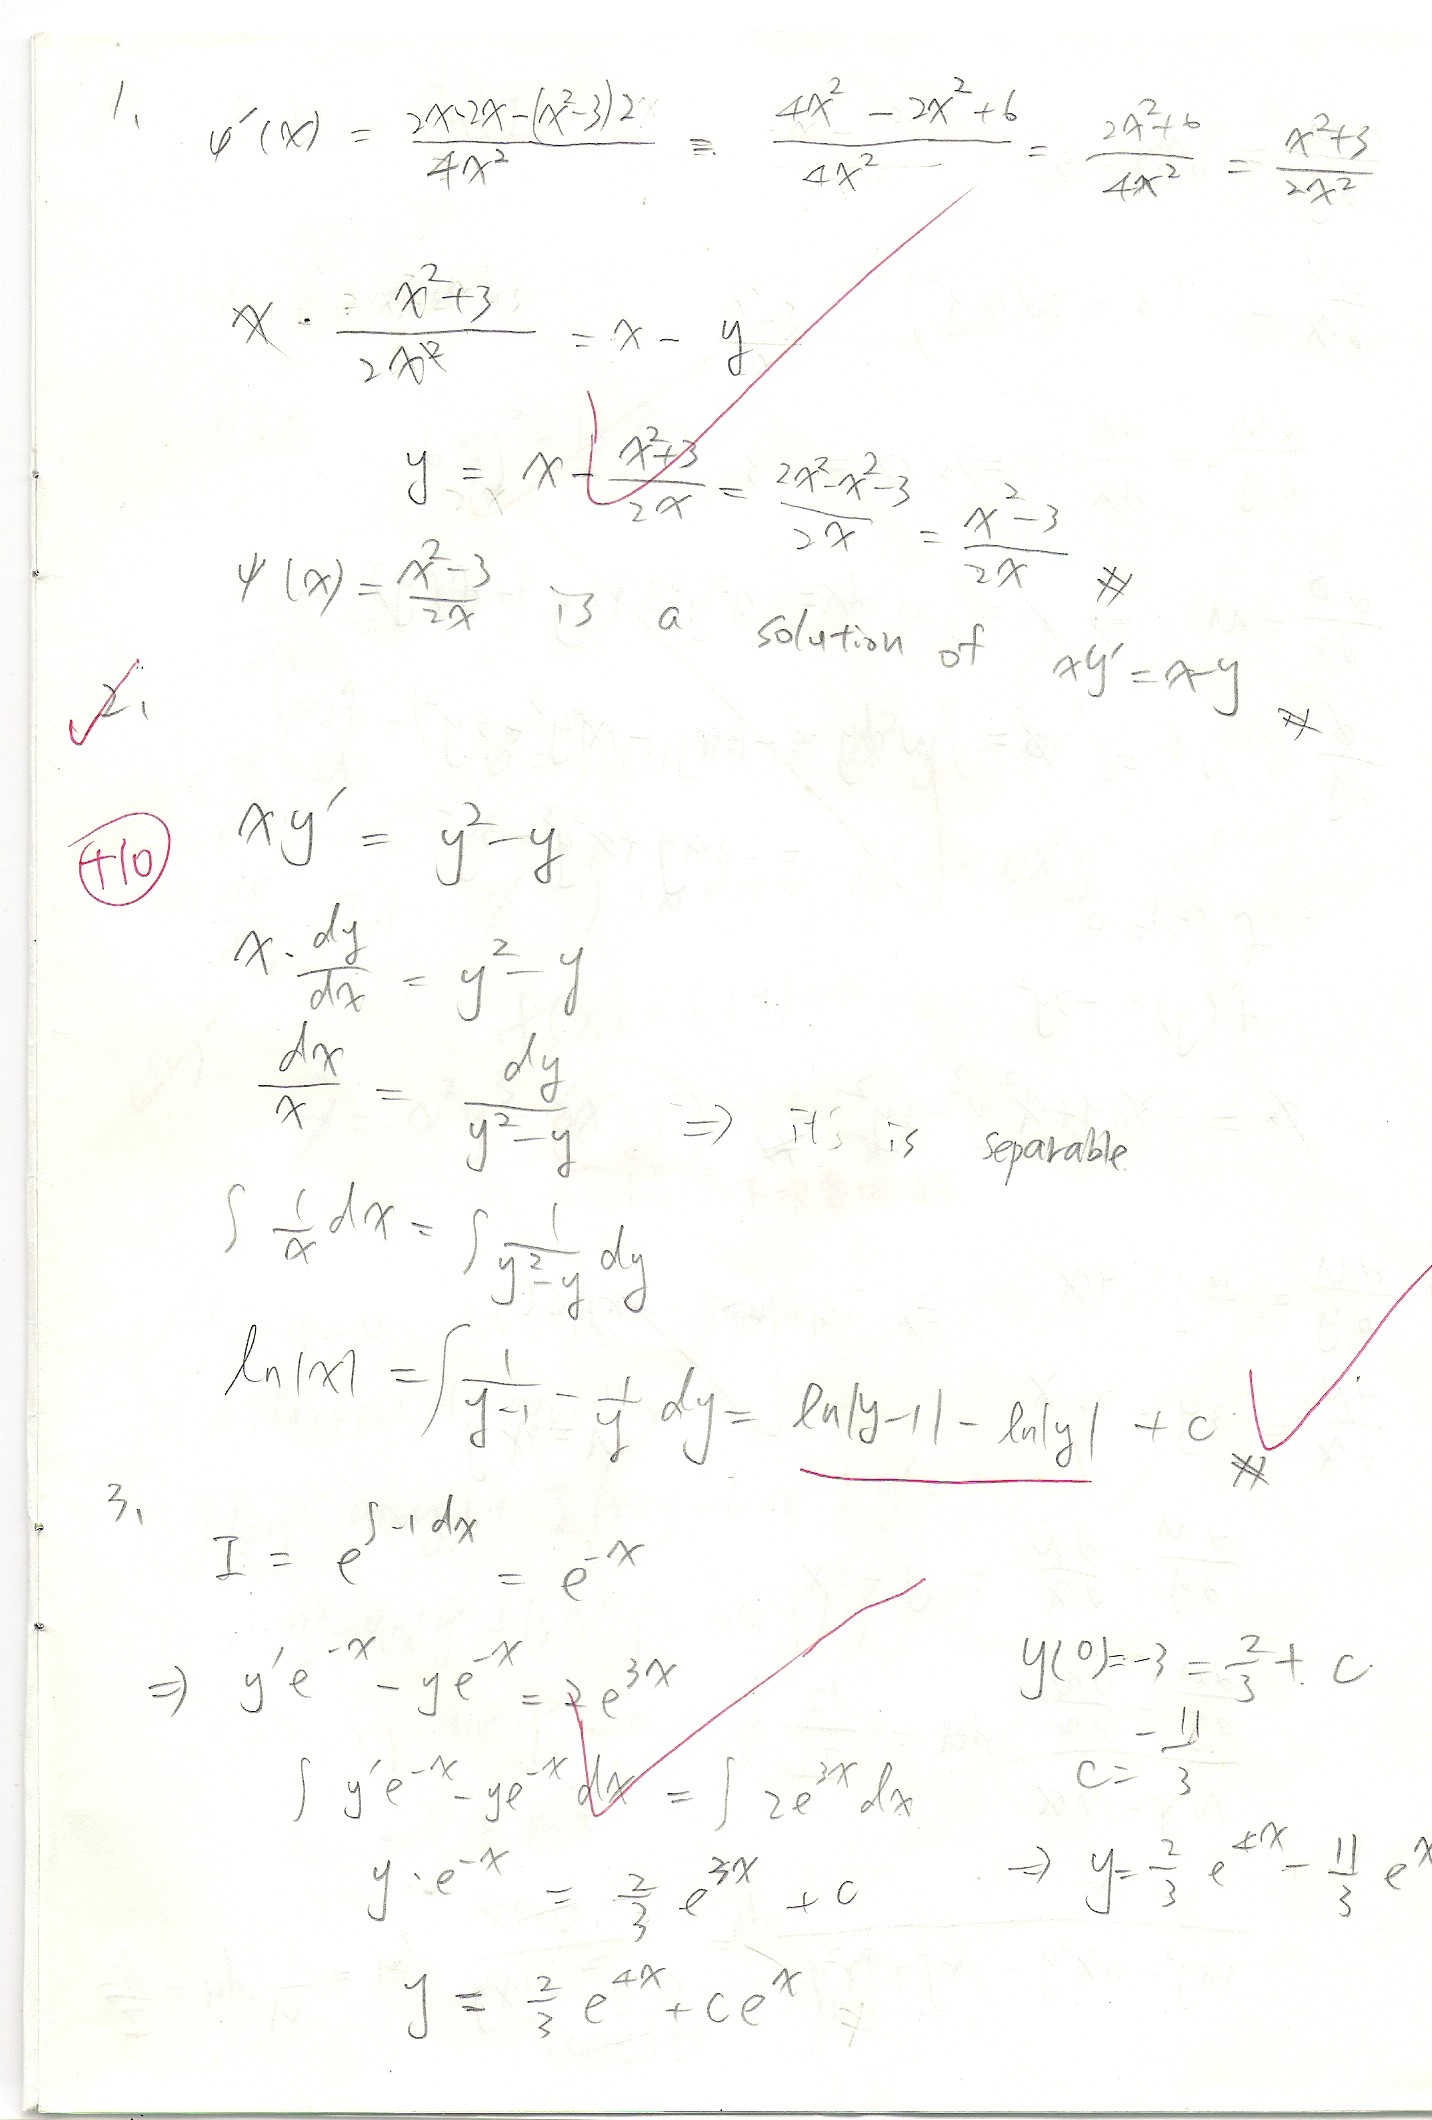 1.
φ'(x) = (2x·2x-(x²-3)2)/(4x²) = (4x² - 2x²+6)/(4x²) = (2x²+6)/(4x²) = (x²+3)/(2x²)
x · (x²+3)/(2x²) = x - y
y = x - (x²+3)/(2x) = (2x²-x²-3)/(2x) = (x²-3)/(2x) #
φ(x) = (x²-3)/(2x) is a solution of xy'=x-y #
2.
+10
xy' = y²-y
x · dy/dx = y²-y
dx/x = dy/(y²-y) ⇒ it's is separable
∫ 1/x dx = ∫ 1/(y²-y) dy
ln|x| = ∫ 1/(y-1) - 1/y dy = ln|y-1| - ln|y| + c #
3.
I = e^(∫-1dx) = e^(-x)
⇒ y'e^(-x) - ye^(-x) = 2e^(3x)
∫ y'e^(-x) - ye^(-x) dx = ∫ 2e^(3x) dx
y·e^(-x) = 2/3 e^(3x) + c
y = 2/3 e^(4x) + ce^x
y(0)=-3 = 2/3 + c
c = -11/3
⇒ y = 2/3 e^(4x) - 11/3 e^x